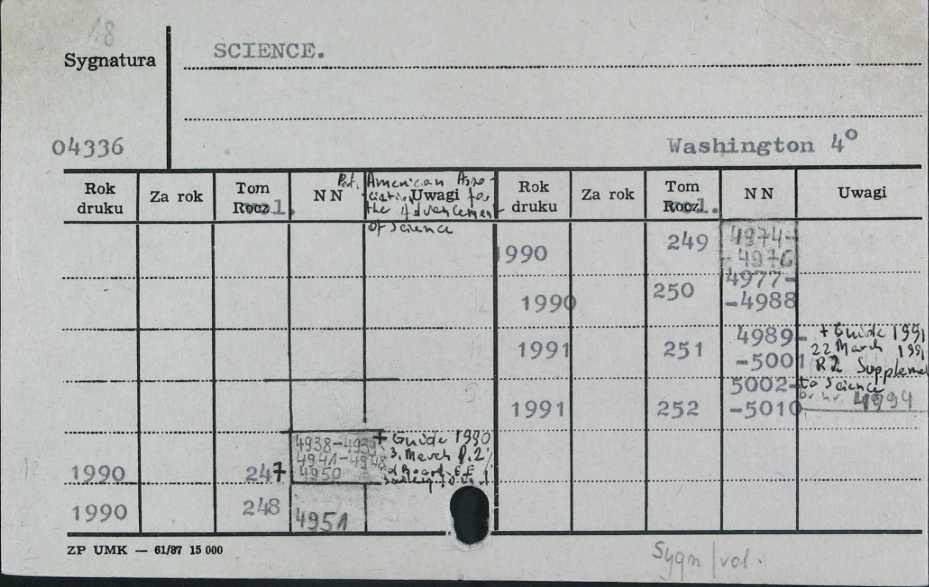 18
Sygnatura
SCIENCE.
04336
Washington 4°
Rok druku
Za rok
Tom
Rocz. vol.
NN
Uwagi
American Asso-
ciation for
the Advancement
of Science
Rok druku
Za rok
Tom
Rocz. vol.
NN
Uwagi
1990 249 4974-
-4976
1990 250 4977-
-4988
1991 251 4989-
-5001
+ Guide 1991
22 March 1991
P. 2 Supplement
to Science
nr 4994
1991 252 5002-
-5010
1990 247 4938-4939
4941-4948
4950
+ Guide 1990
3. March P. 2
1990 248 4951
ZP UMK — 61/87 15 000
Sygn/vol.